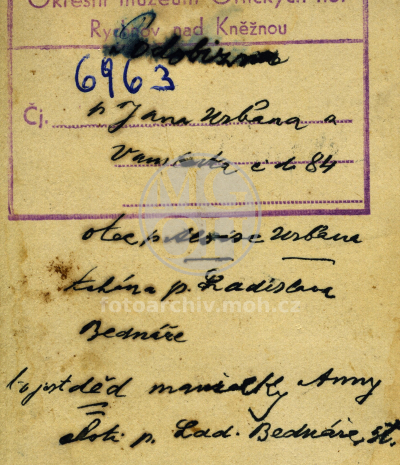 Okresní muzeum Orlických hor
Rychnov nad Kněžnou
Podobizna
6963
Čj.
p Jana Urbana
Vamberka č d 84
otec p. Urbana
p. Ladislava
Bednáře
to jest děd manželky Anny
p. Lad. Bednáře, st.
fotoarchiv.moh.cz